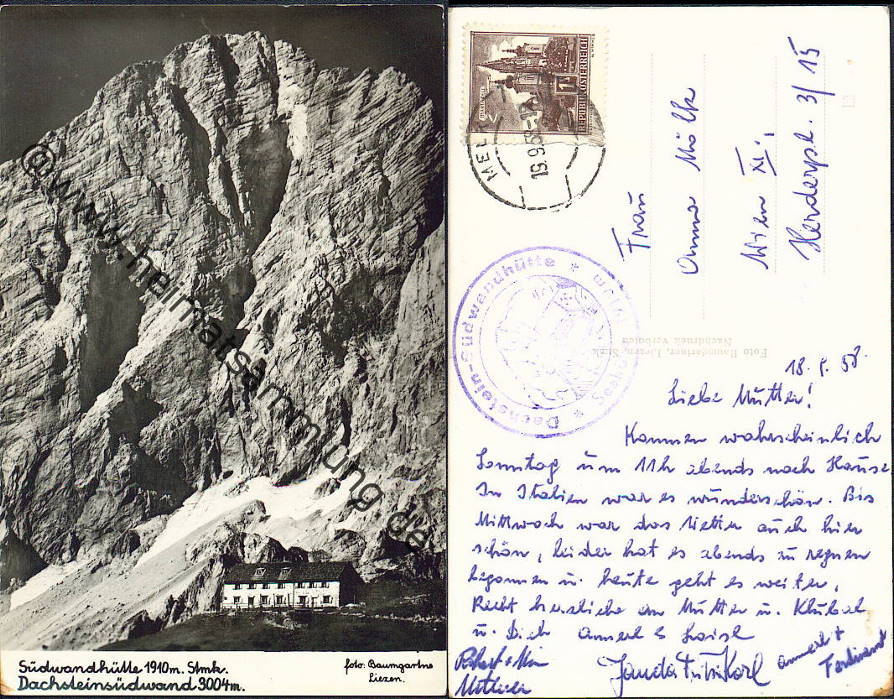 www.heimatsammlung.de
Südwandhütte 1910m. Stmk.
Dachsteinsüdwand 3004m.
foto: Baumgartner
Liezen.
REPUBLIK ÖSTERREICH
19.9.58
Frau
Anna Mölk
Wien XI.,
Herderpl. 3/15
Dachstein-Südwandhütte
Foto Baumgartner, Liezen, Stmk.
Nachdruck verboten
18. 9. 58
Liebe Mutter!
Kommen wahrscheinlich
Sonntag um 11h abends nach Hause
In Italien war es wunderschön. Bis
Mittwoch war das Wetter auch hier
schön, leider hat es abends zu regnen
begonnen u. heute geht es weiter.
Recht herzliche an Mutter u.
u. Dich Annerl &
Annerl +
Ferdinand